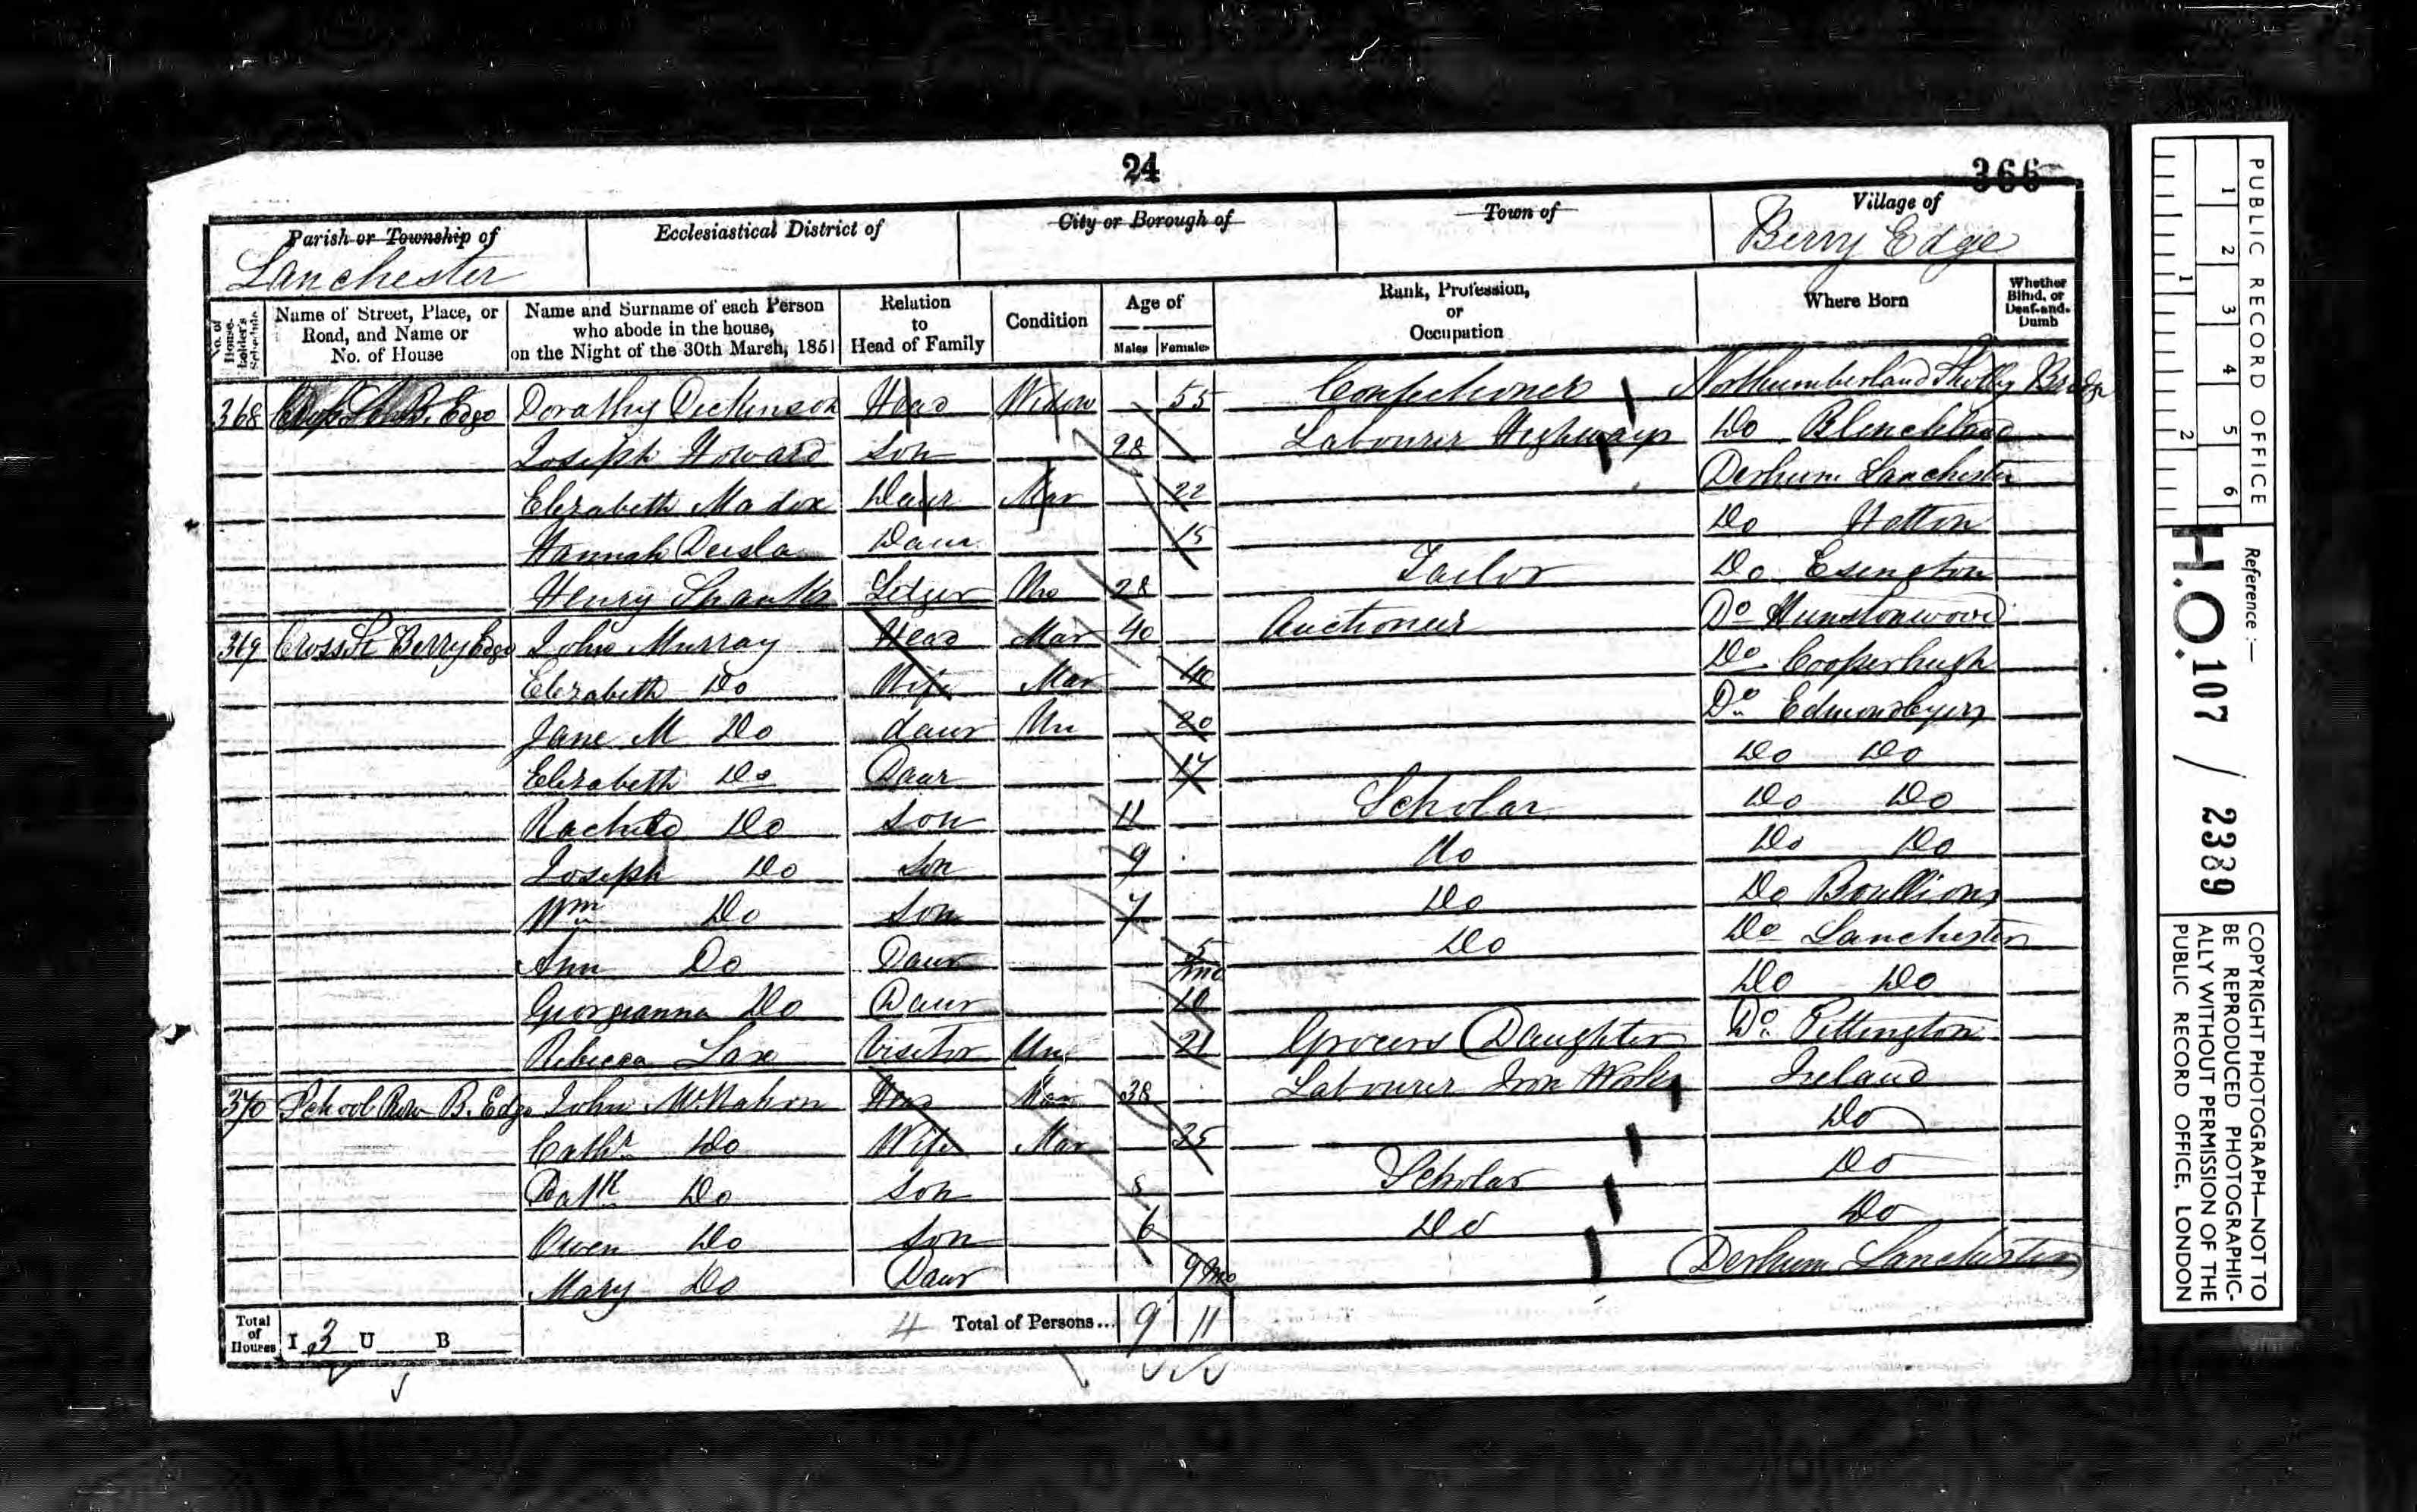 24
366
Parish or Township of
Lanchester
Ecclesiastical District of
City or Borough of
Town of
Village of
Berry Edge
No. of House-holder's Schedule
Name of Street, Place, or Road, and Name or No. of House
Name and Surname of each Person who abode in the house, on the Night of the 30th March, 1851
Relation to Head of Family
Condition
Age of
Males Females
Rank, Profession, or Occupation
Where Born
Whether Blind, or Deaf-and-Dumb
368 B. Edge Dorathy Dickinson Head Widow 55 Confectioner Northumberland Shotley Bridge
Joseph Howard Son 28 Labourer Highways Do Blenchland
Elizabeth Madox Daur Mar 22 Derhum Lanchester
Hannah Daur 15 Do Hetton
Henry Shanks Lodger Un 28 Tailor Do Esington
369 Cross St Berry Edge John Murray Head Mar 40 Auctioneer Do Hunstonwood
Elizabeth Do Wife Mar 40 Do
Jane M Do daur Un 20 Do Edmondbyers
Elizabeth Do Daur 17 Do Do
Do Son 11 Scholar Do Do
Joseph Do Son 9 Do Do Do
Wm Do Son 7 Do Do Boultions
Ann Do Daur 5 Do Do Lanchester
Georgianna Do Daur 10 mo Do Do
Rebecca Lax Visitor Un 21 Grocers Daughter Do Pittington
370 School Row B. Edge John McMahon Head Mar 38 Labourer Iron Works Ireland
Cathr Do Wife Mar 25 Do
Patk Do Son 8 Scholar Do
Owen Do Son 6 Do Do
Mary Do Daur 9 mo Derhum Lanchester
Total of Houses I 3 U B
4 Total of Persons... 9 11
PUBLIC RECORD OFFICE
1 2 3 4 5 6
1 2
Reference :—
H.O. 107 / 2389
COPYRIGHT PHOTOGRAPH—NOT TO
BE REPRODUCED PHOTOGRAPHIC-
ALLY WITHOUT PERMISSION OF THE
PUBLIC RECORD OFFICE, LONDON